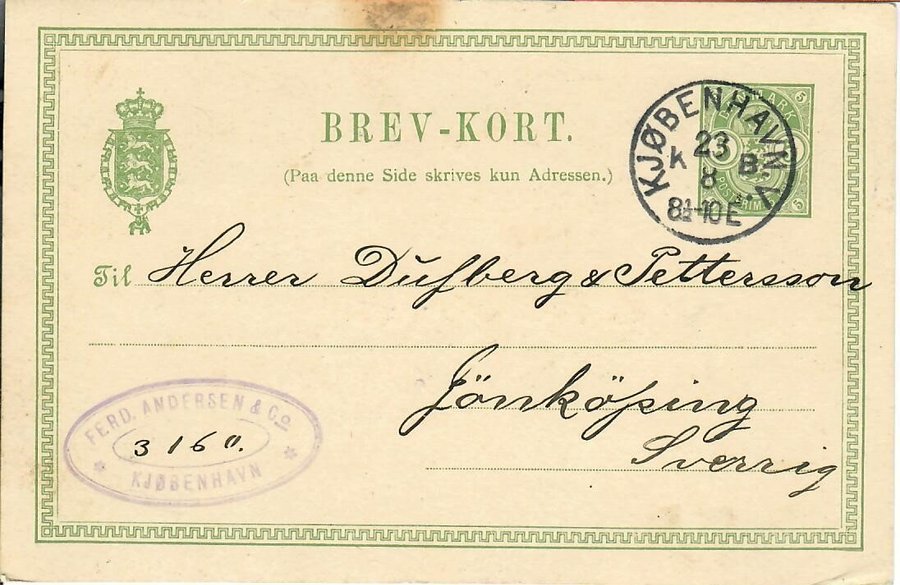 BREV-KORT.
(Paa denne Side skrives kun Adressen.)
KJØBENHAVN.V.
23
K B.
8
8½-10 E
5
5
Til Herrer Dufberg & Pettersson
Jönköping
Sverrig
FERD. ANDERSEN & Co
3160.
KJØBENHAVN